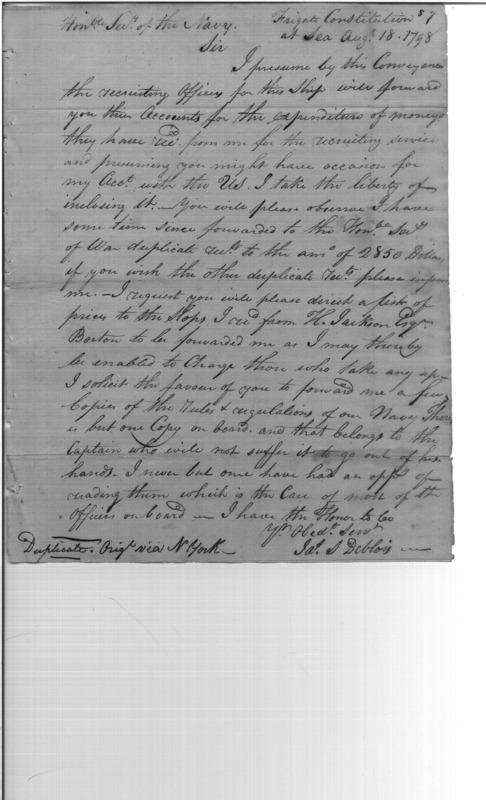 Honble Secy of the Navy. Frigate Constitution 87
Sir at Sea Augt 18. 1798
I presume by this Conveyance
the recruiting Officers for this Ship will forward
you their Accounts for the expenditure of moneys
they have recd. from me for the recruiting service
and presuming you might have occasion for
my Acct. with the US. I take the liberty of
inclosing it. – You will please observe I have
some time since forwarded to the Honble Secy
of War duplicate rects to the amo of 2850 Dollars
if you wish the other duplicate rects please inform
me. – I request you will please direct a list of
prices to the Slops I recd from H. Jackson Esqr.
Boston to be forwarded me as I may thereby
be enabled to Charge those who take any up.
I solicit the favour of you to forward me a few
Copies of the Rules & regulations of our Navy there
is but one Copy on board. and that belongs to the
Captain who will not suffer it to go out of his
hands. I never but once have had an oppy of
reading them which is the Case of most of the
Officers on board – I have the Honor to be
Yr. Obedt. Servt
Duplicate. Origl via N York – Jas. S Deblois –